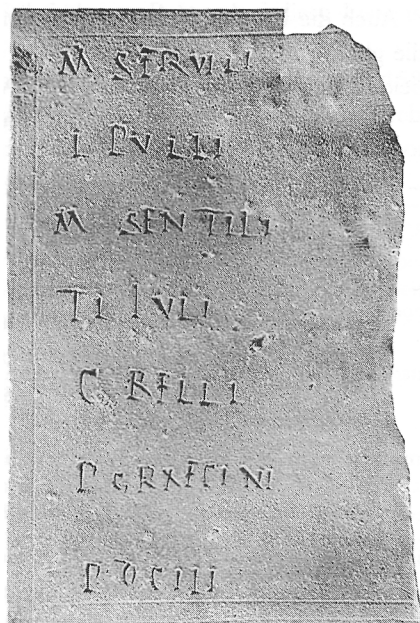 M SERVILI
L PVLLI
M SENTILI
TI IVLI
C BELLI
P GRAECINI
P OCILI